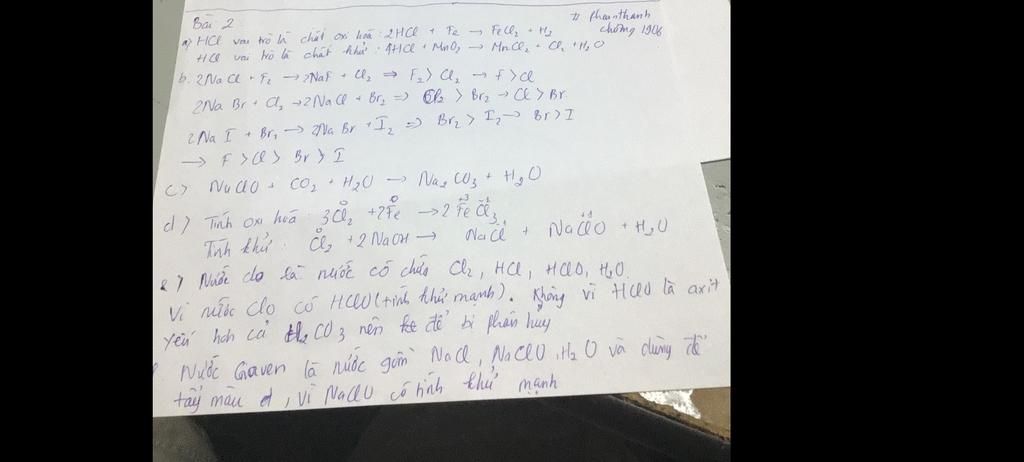 Bài 2
# phamthanh
chong 1906
a) HCl vai trò là chất oxi hoá: 2HCl + Fe → FeCl2 + H2
HCl vai trò là chất khử: 4HCl + MnO2 → MnCl2 + Cl2 + H2O
b. 2NaCl + F2 → 2NaF + Cl2 ⇒ F2 > Cl2 → F > Cl
2NaBr + Cl2 → 2NaCl + Br2 ⇒ Cl2 > Br2 → Cl > Br
2NaI + Br2 → 2NaBr + I2 ⇒ Br2 > I2 → Br > I
→ F > Cl > Br > I
c) NaClO + CO2 + H2O → Na2CO3 + H2O
d) Tính oxi hoá: 3Cl2 + 2Fe → 2FeCl3
Tính khử: Cl2 + 2NaOH → NaCl + NaClO + H2O
e) Nước clo là nước có chứa Cl2, HCl, HClO, H2O.
Vì nước clo có HClO (tính khử mạnh). Không vì HClO là axit
yếu hơn cả H2CO3 nên để bị phân huỷ
Nước Gaven là nước gồm NaCl, NaClO, H2O và dùng để
tẩy màu, vì NaClO có tính khử mạnh